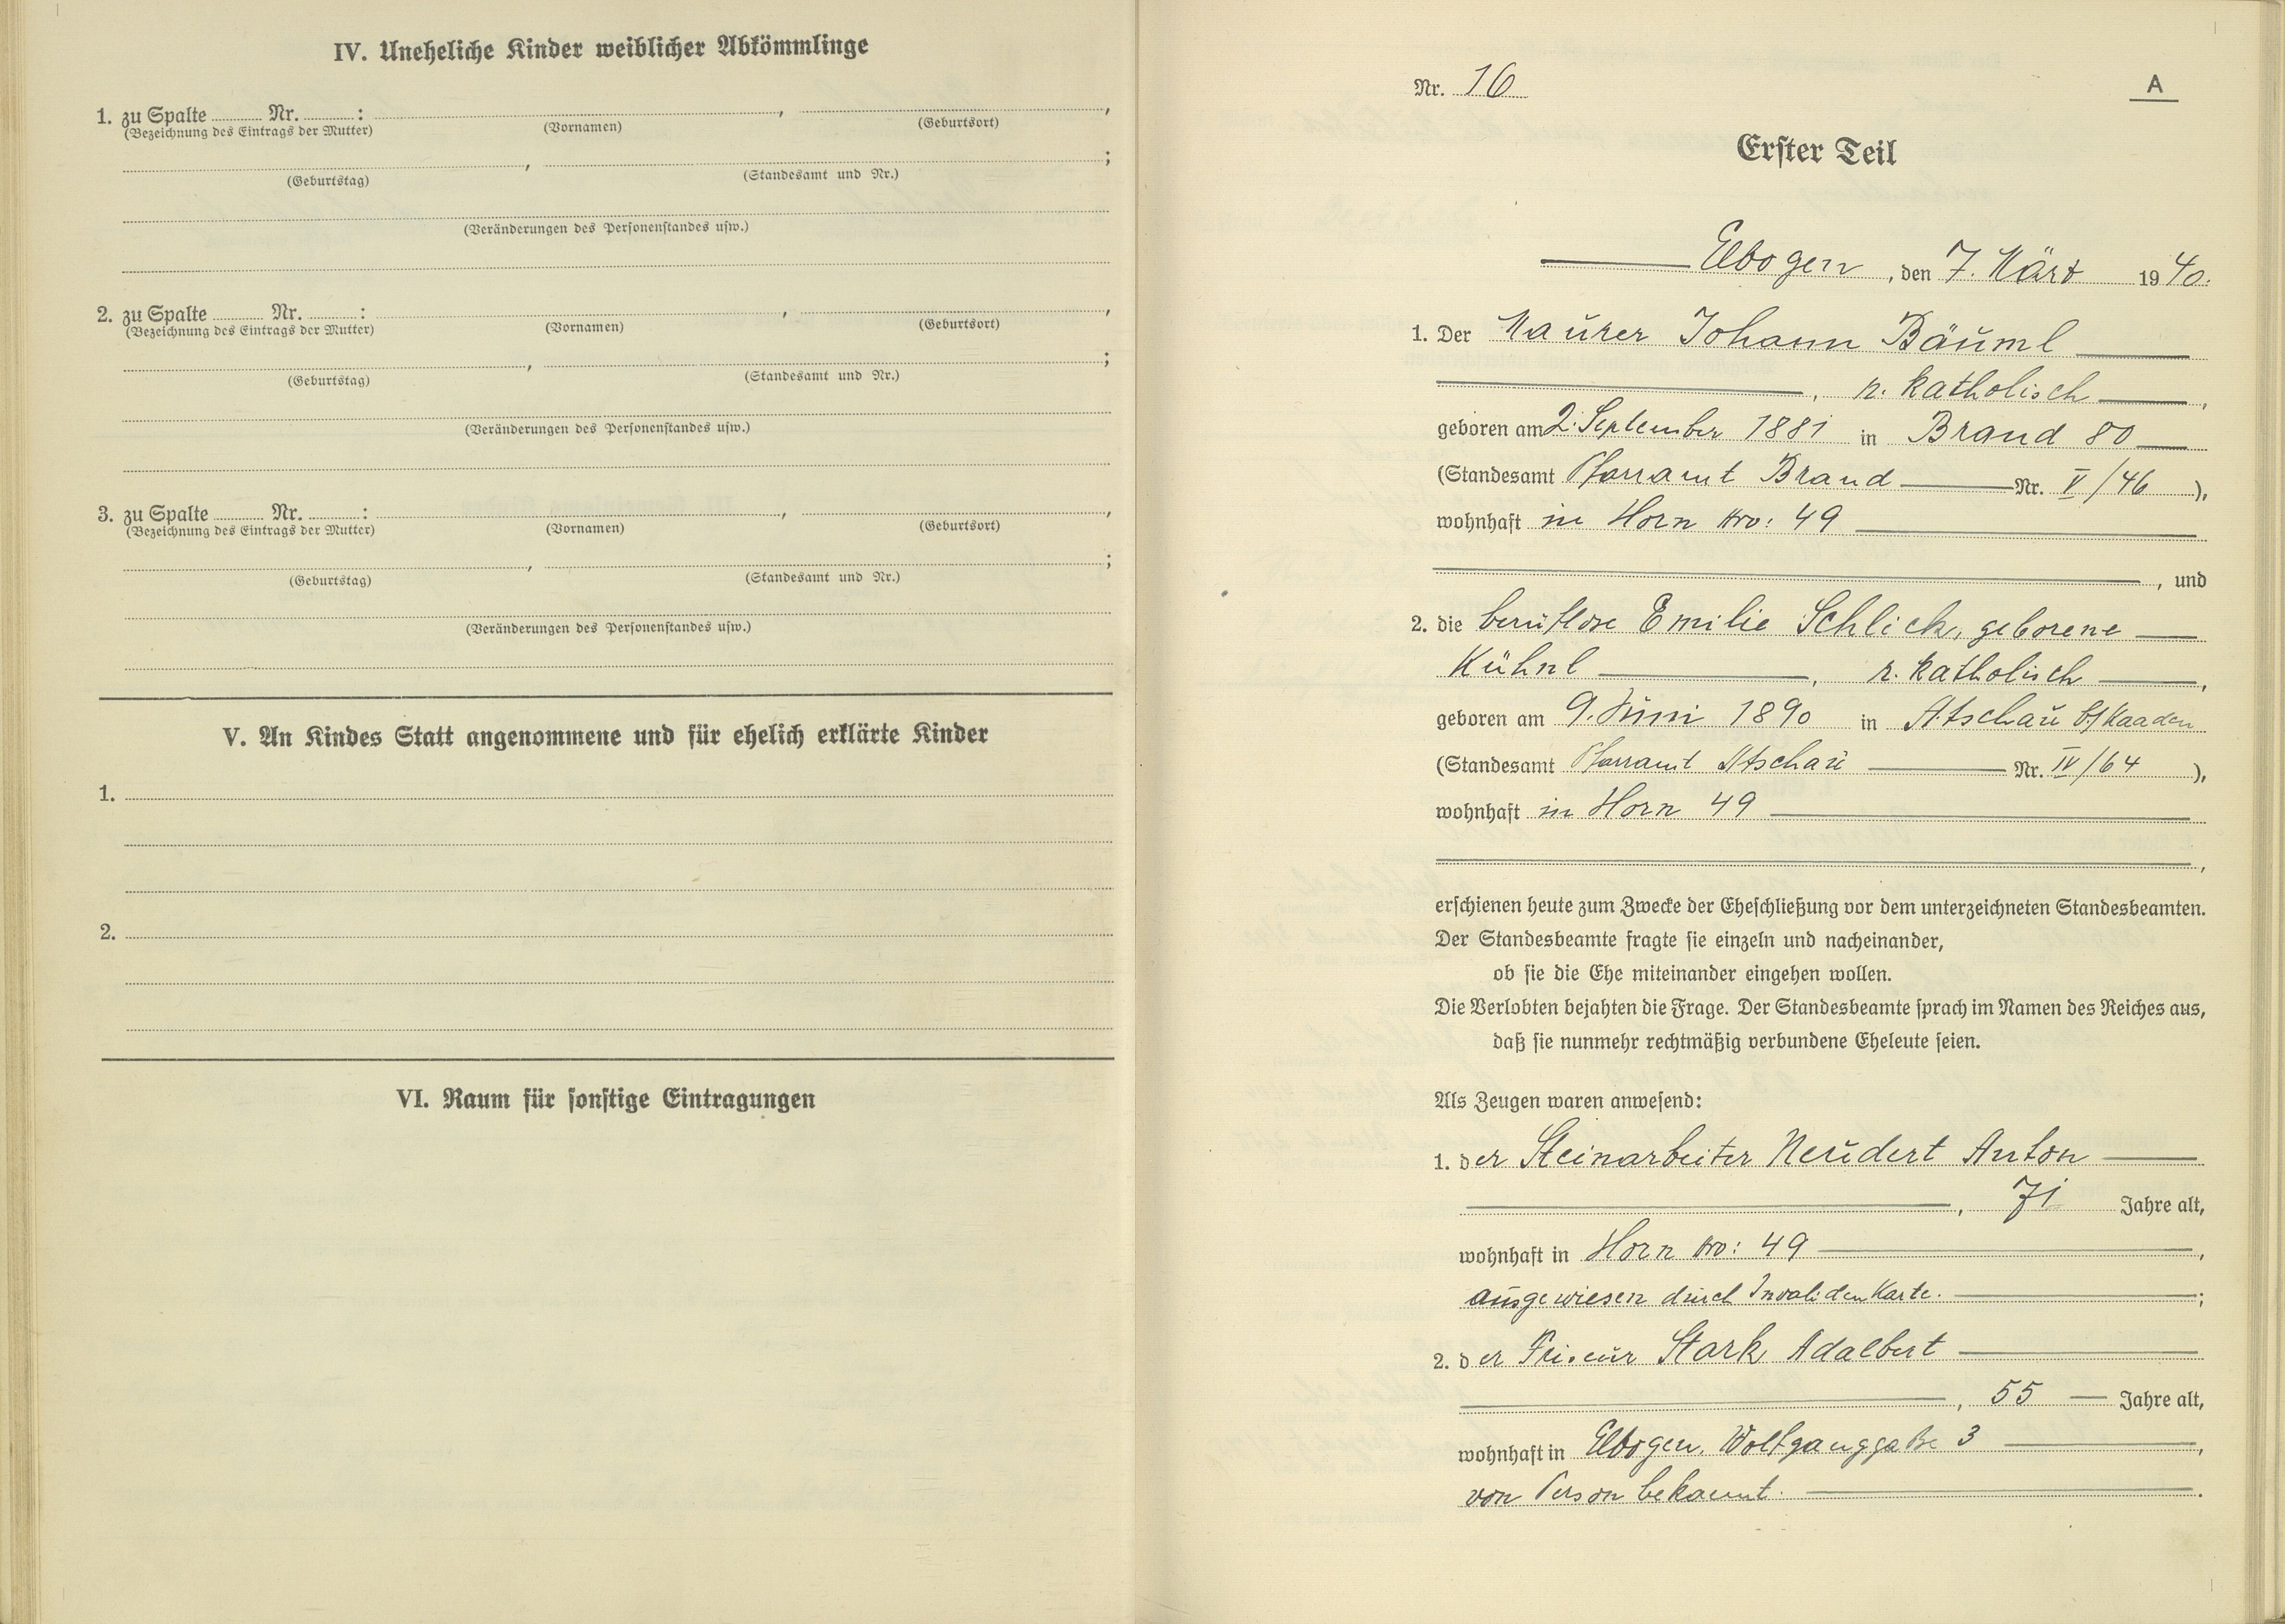 IV. Uneheliche Kinder weiblicher Abkömmlinge
1. zu Spalte ........ Nr. ........ : ........ , ........ ,
(Bezeichnung des Eintrags der Mutter) (Vornamen) (Geburtsort)
........ , ........ ;
(Geburtstag) (Standesamt und Nr.)
(Veränderungen des Personenstandes usw.)
2. zu Spalte ........ Nr. ........ : ........ , ........ ,
(Bezeichnung des Eintrags der Mutter) (Vornamen) (Geburtsort)
........ , ........ ;
(Geburtstag) (Standesamt und Nr.)
(Veränderungen des Personenstandes usw.)
3. zu Spalte ........ Nr. ........ : ........ , ........ ,
(Bezeichnung des Eintrags der Mutter) (Vornamen) (Geburtsort)
........ , ........ ;
(Geburtstag) (Standesamt und Nr.)
(Veränderungen des Personenstandes usw.)
V. An Kindes Statt angenommene und für ehelich erklärte Kinder
1.
2.
VI. Raum für sonstige Eintragungen
Nr. 16
A
Erster Teil
Elbogen, den 7. März 1940.
1. Der Maurer Johann Bäuml
, r. katholisch,
geboren am 2. September 1881 in Brand 80
(Standesamt Pfarramt Brand Nr. V/46),
wohnhaft in Horn Nro: 49
, und
2. die berufslose Emilie Schlick, geborene
Kühnl, r. katholisch,
geboren am 9. Juni 1890 in Atschau b/Kaaden
(Standesamt Pfarramt Atschau Nr. IV/64),
wohnhaft in Horn 49
,
erschienen heute zum Zwecke der Eheschließung vor dem unterzeichneten Standesbeamten.
Der Standesbeamte fragte sie einzeln und nacheinander,
ob sie die Ehe miteinander eingehen wollen.
Die Verlobten bejahten die Frage. Der Standesbeamte sprach im Namen des Reiches aus,
daß sie nunmehr rechtmäßig verbundene Eheleute seien.
Als Zeugen waren anwesend:
1. der Steinarbeiter Neudert Anton
, 71 Jahre alt,
wohnhaft in Horn Nro: 49,
ausgewiesen durch Invaliden Karte. ;
2. der Friseur Stark Adalbert
, 55 Jahre alt,
wohnhaft in Elbogen, Wolfganggaße 3,
von Person bekannt.